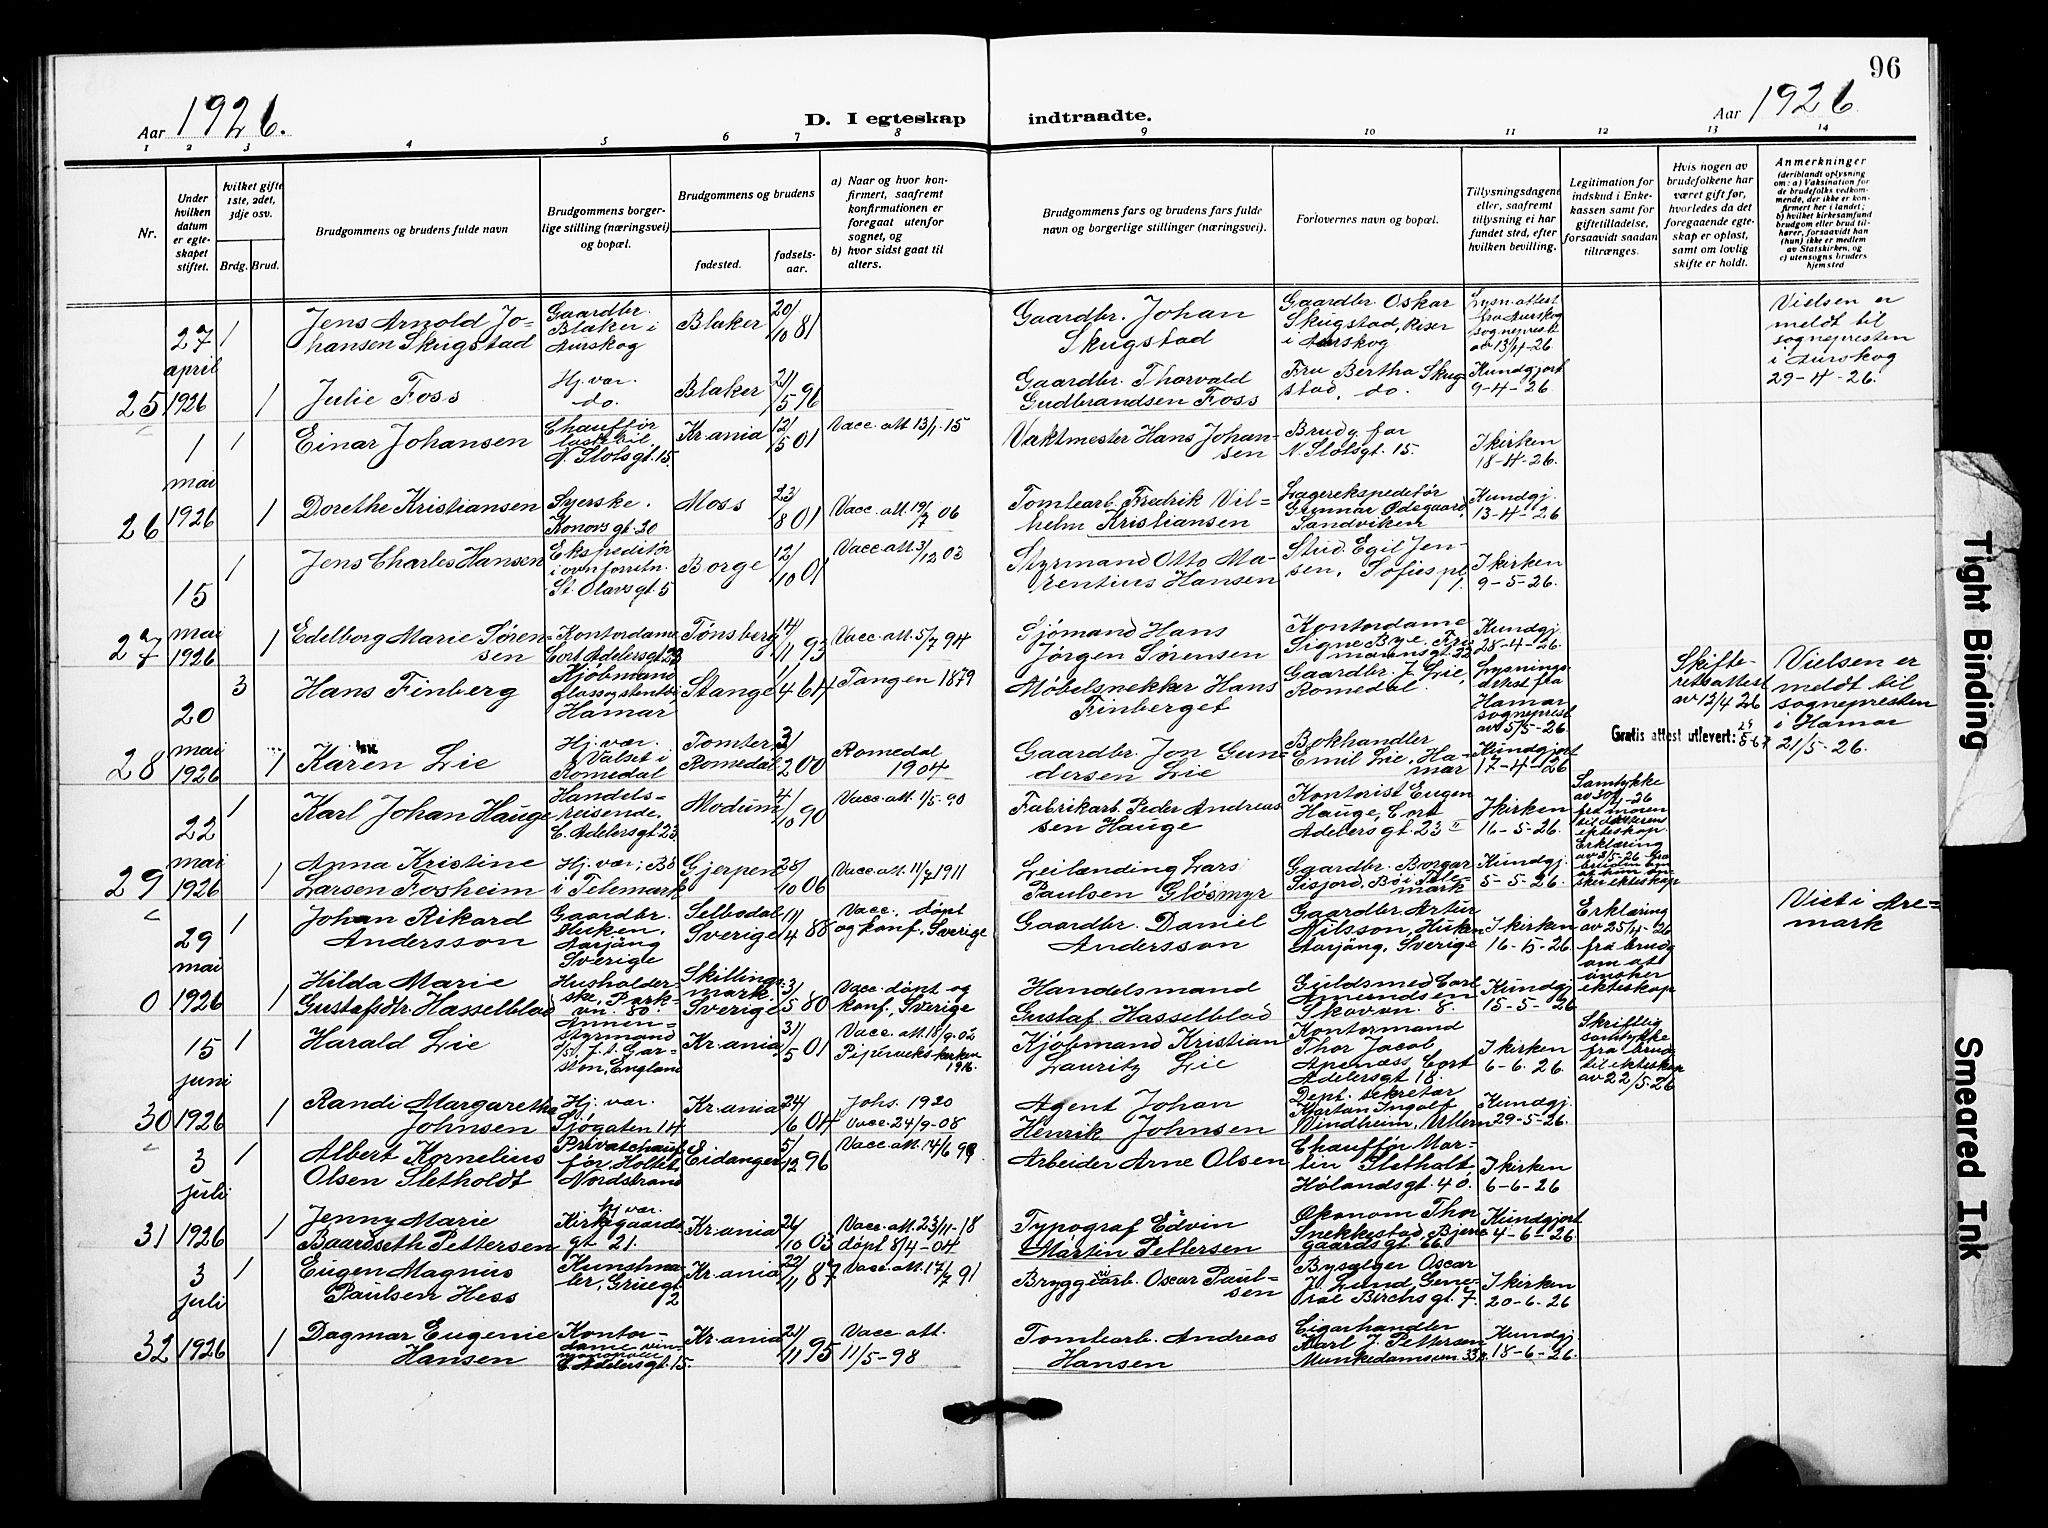 96
Aar 1926.
D. I egteskap
indtraadte.
Aar 1926
1 2 3 4 5 6 7 8 9 10 11 12 13 14
Nr.
Under hvilken datum er egteskapet stiftet.
hvilket gifte 1ste, 2det, 3dje osv.
Brdg. Brud.
Brudgommens og brudens fulde navn
Brudgommens borgerlige stilling (næringsvei) og bopæl.
Brudgommens og brudens
fødested.
fødselsaar.
a) Naar og hvor konfirmert, saafremt konfirmationen er foregaat utenfor sognet, og
b) hvor sidst gaat til alters.
Brudgommens fars og brudens fars fulde navn og borgerlige stillinger (næringsvei).
Forlovernes navn og bopæl.
Tillysningsdagene eller, saafremt tillysning ei har fundet sted, efter hvilken bevilling.
Legitimation for indskud i Enkekassen samt for giftetilladelse, forsaavidt saadan tiltrænges.
Hvis nogen av brudefolkene har været gift før, hvorledes da det foregaaende egteskap er opløst, samt om lovlig skifte er holdt.
Anmerkninger (deriblandt oplysning om: a) Vaksination for de brudefolks vedkommende, der ikke er konfirmert her i landet; b) hvilket kirkesamfund brudgom eller brud tilhører, forsaavidt han (hun) ikke er medlem av Statskirken, og c) utensogns bruders hjemsted
25 27 april 1926
1 Jens Arnold Johansen Skugstad
Gaardbr. Blaker i Aurskog
Blaker 20/10 81
Gaardbr. Johan Skugstad
Gaardbr. Oskar Skugstad, Riser i Aurskog
Lysn.attest fra Aurskog sogneprest av 13/4-26
Vielsen er meldt til sognepresten i Aurskog 29-4-26.
1 Julie Foss
Hj. vær. do.
Blaker 21/5 96
Gaardbr. Thorvald Gudbrandsen Foss
Fru Bertha Skugstad, do.
Kundgjort 9-4-26
26 1 mai 1926
1 Einar Johansen
Chauffør lastebil N. Slotsgt. 15.
Kr.ania 12/5 01
Vacc. att 13/1-15
Vaktmester Hans Johansen
Brudg. far N. Slotsgt. 15.
I kirken 18-4-26.
1 Dorethe Kristiansen
Syerske. Konowsgt. 20
Moss 23/8 01
Vacc. att. 19/7 06
Tomtearb. Fredrik Vilhelm Kristiansen
Lagerekspeditør Gunnar Ødegaard, Sandviken
Kundgj. 13-4-26
27 15 mai 1926
1 Jens Charles Hansen
Ekspeditør i ovnforretn. St. Olavsgt. 5
Borge 12/10 01
Vacc. att. 3/12 03
Styrmand Otto Marentius Hansen
Stud. Egil Jensen, Sofiespl. 1.
I kirken 9-5-26.
1 Edelborg Marie Sørensen
Kontordame Cort Adelersgt. 23
Tønsberg 14/11 93
Vacc. att. 5/7 94
Sjømand Hans Jørgen Sørensen
Kontordame Signe Bye,
Kundgj. 28-4-26.
28 20 mai 1926
3 Hans Finberg
Kjøbmand Hamar
Stange 1/4 64
Tangen 1879
Møbelsnekker Hans Finberget
Gaardbr. J. Lie, Romedal.
Lysningsattest fra Hamar sogneprest av 5/5-26.
Skifteretsattest av 13/4 26
Vielsen er meldt til sognepresten i Hamar 21/5-26.
Gratis attest utlevert:
1 Karen Lie
Hj. vær. Valset i Romedal
Tomter, Romedal 3/2 00
Romedal 1904
Gaardbr. Jon Gundersen Lie
Bokhandler Emil Lie, Hamar
Kundgjort 17-4-26
29 22 mai 1926
1 Karl Johan Hauge
Handelsreisende, C. Adelersgt. 23
Modum 4/10 90
Vacc. att. 1/5-90
Fabrikarb. Peder Andreassen Hauge
Kontorist Eugen Hauge, Cort Adelersgt. 23 II
I kirken 16-5-26.
Samtykke av 30/4-26
1 Anna Kristine Larsen Fosheim
Hj. vær; Bø i Telemark
Gjerpen 28/10 06
Vacc. att. 11/7 1911
Leilænding Lars Paulsen Gløsmyr
Gaardbr. Borgar Sisjord, Bø i Telemark
Kundgj. 5-5-26.
0 29 mai 1926
1 Johan Rikard Andersson
Gaardbr. Huken, Aarjäng Sverige
Selbodal Sverige 11/4 88
Vacc., døpt og konf., Sverige
Gaardbr. Daniel Andersson
Gaardbr. Artur Nilsson, Huken Aarjäng, Sverige
I kirken 16-5-26
Erklæring av 25/4-26 fra brudg om at ønsker ekteskap
Viet i Aremark
1 Hilda Marie Gustafsdtr. Hasselblad
Husholderske, Parkvn. 80.
Skillingsmark. Sverige 3/5 80
Vacc. døpt og konf., Sverige
Handelsmand Gustaf Hasselblad
Guldsmed Carl Amundsen Skovvn. 8.
Kundgj. 15-5-26
30 15 juni 1926
1 Harald Lie
Annenstyrmand England
Kr.ania 31/5 01
Vacc. att. 18/9-02 Pipervikskirken 1916.
Kjøbmand Kristian Lauritz Lie
Kontormand Thor Jacob Apenæss Cort Adelersgt 18.
I kirken 6-6-26
Skriftlig samtykke fra brudg til ekteskap av 22/5-26
1 Randi Margarethe Johnsen
Hj. vær. Sjøgaten 14
Kr.ania 24/6 04
Johs. 1920 Vacc. 24/9-08
Agent Johan Henrik Johnsen
Dept. sekretær Martan Ingolf Windheim, Ullern
Kundgj. 29-5-26.
31 3 juli 1926
1 Albert Kornelius Olsen Sletholdt
Privatchauffør, Holtet Nordstrand
Eidanger 5/12 96
Vacc. att. 14/6 99
Arbeider Arne Olsen
Chauffør Martin Sletholt, Hølandsgt. 40.
I kirken 6-6-26
1 Jenny Marie Baardseth Pettersen
hj. vær. Kirkegaardsgt 21.
Kr.ania 26/10 03
Vacc. att. 23/11-18 døpt 8/4-04
Typograf Edvin Martin Pettersen
Økonom Thor Snekkestad, Bjerregaardsgt 66.
Kundgjort 4-6-26
32 3 juli 1926
1 Eugen Magnus Paulsen Hess
Kunstmaler, Gruegt 2
Kr.ania 22/11 87
Vacc. att. 17/7 91
Bryggeriarb. Oscar Paulsen
Bysælger Oscar J. Lund, General Birchsgt. 7.
I kirken 20-6-26
1 Dagmar Eugenie Hansen
Kontordame vinmonopolet C. Adelersgt. 15.
Kr.ania 21/11 95
Vacc. att. 11/5-98
Tomtearb. Andreas Hansen
Cigarhandler Karl J. Pettersen Munkedamsvn 33
Kundgj. 18-6-26.
Tight Binding
Smeared Ink